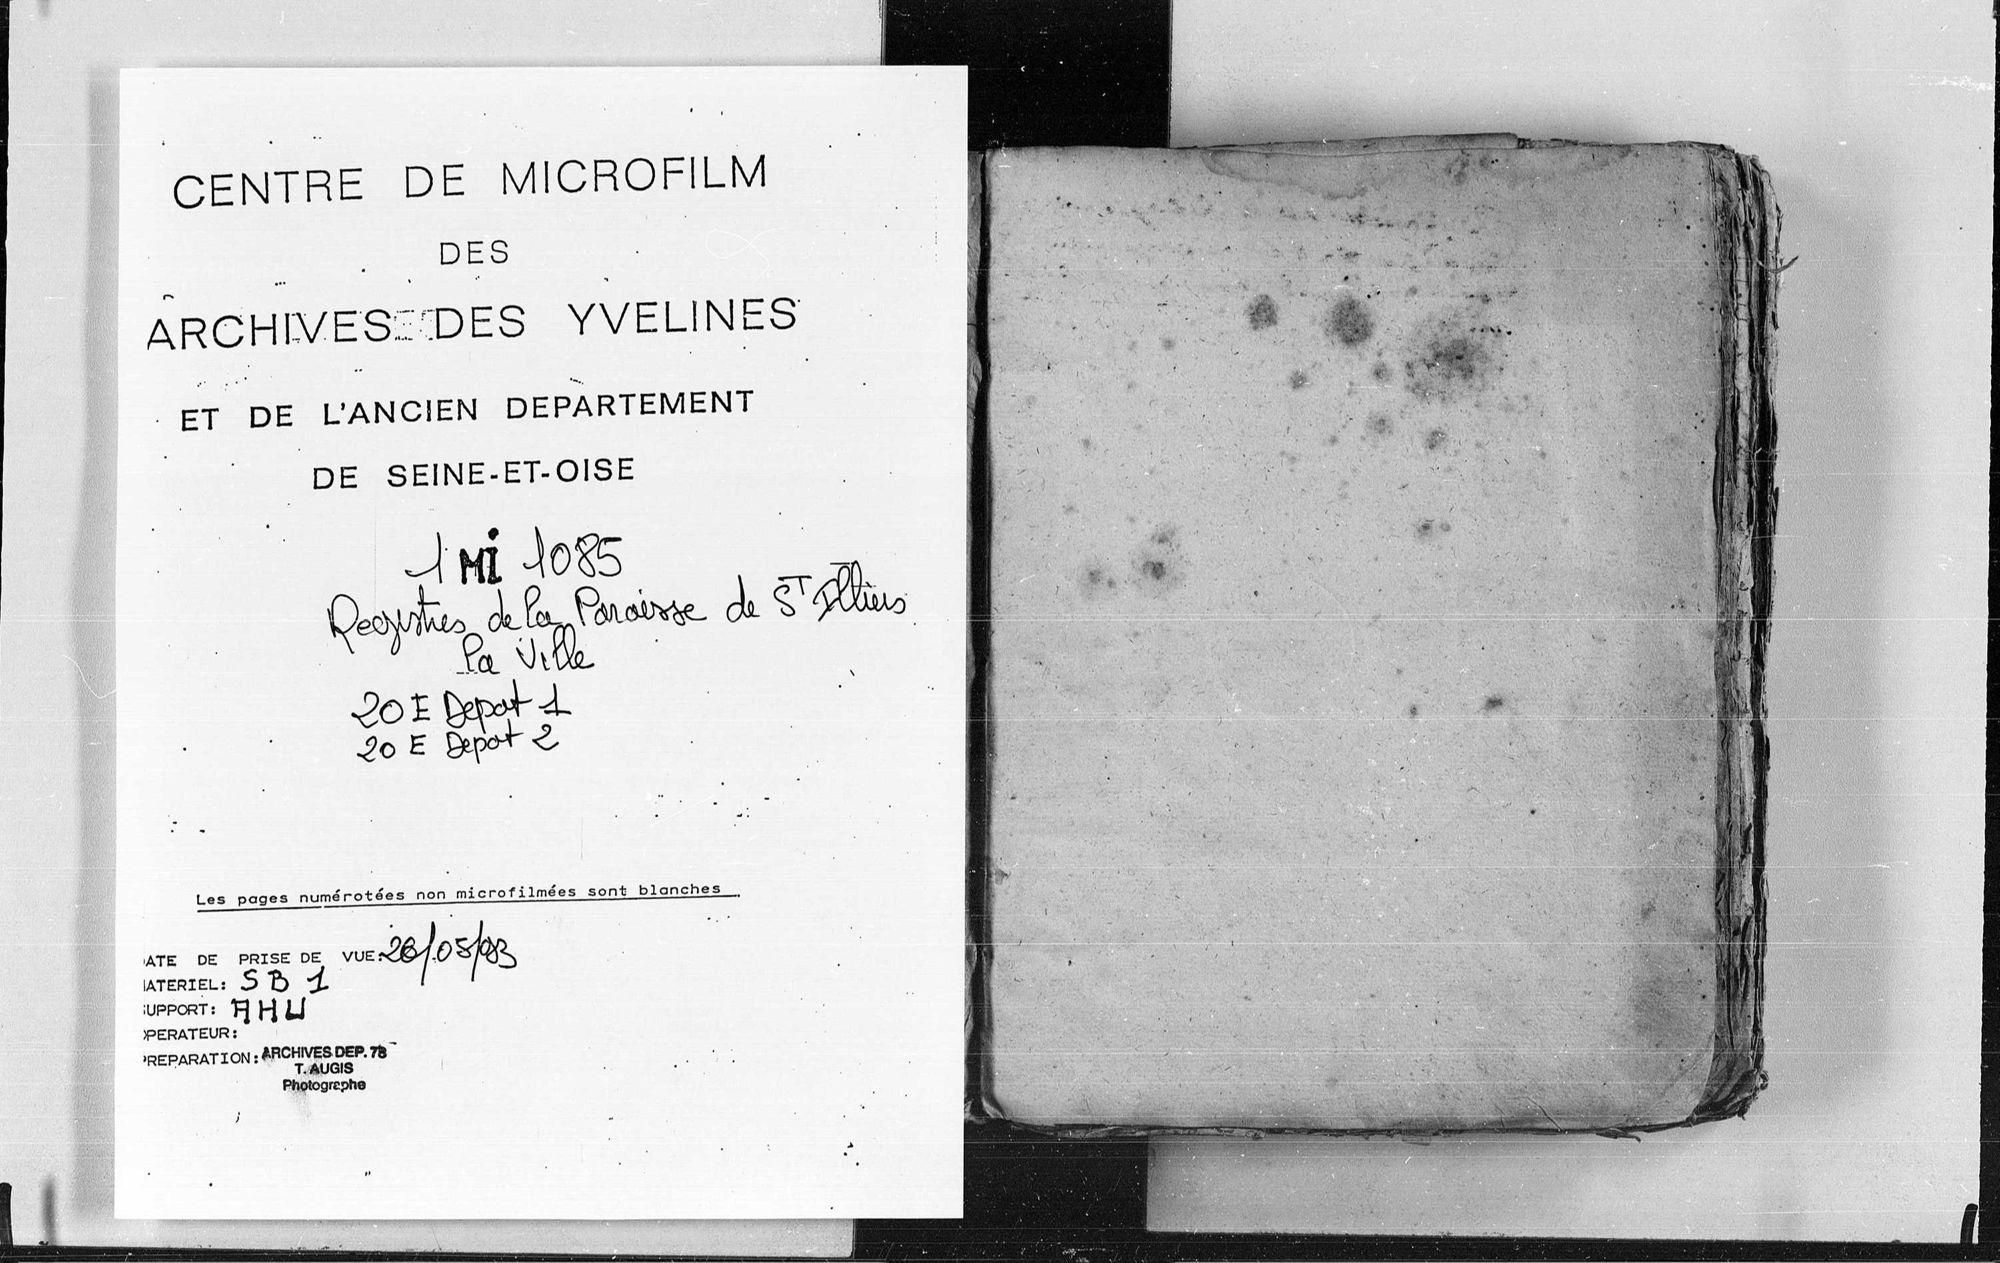 CENTRE DE MICROFILM
DES
ARCHIVES DES YVELINES
ET DE L'ANCIEN DEPARTEMENT
DE SEINE-ET-OISE
1 Mi 1085
Registres de la Paroisse de St Illiers
la Ville
20 E Depot 1
20 E Depot 2
Les pages numérotées non microfilmées sont blanches
ATE DE PRISE DE VUE: 26/05/93
ATERIEL: SB 1
UPPORT: AHU
PERATEUR:
REPARATION: ARCHIVES DEP. 78
T. AUGIS
Photographe